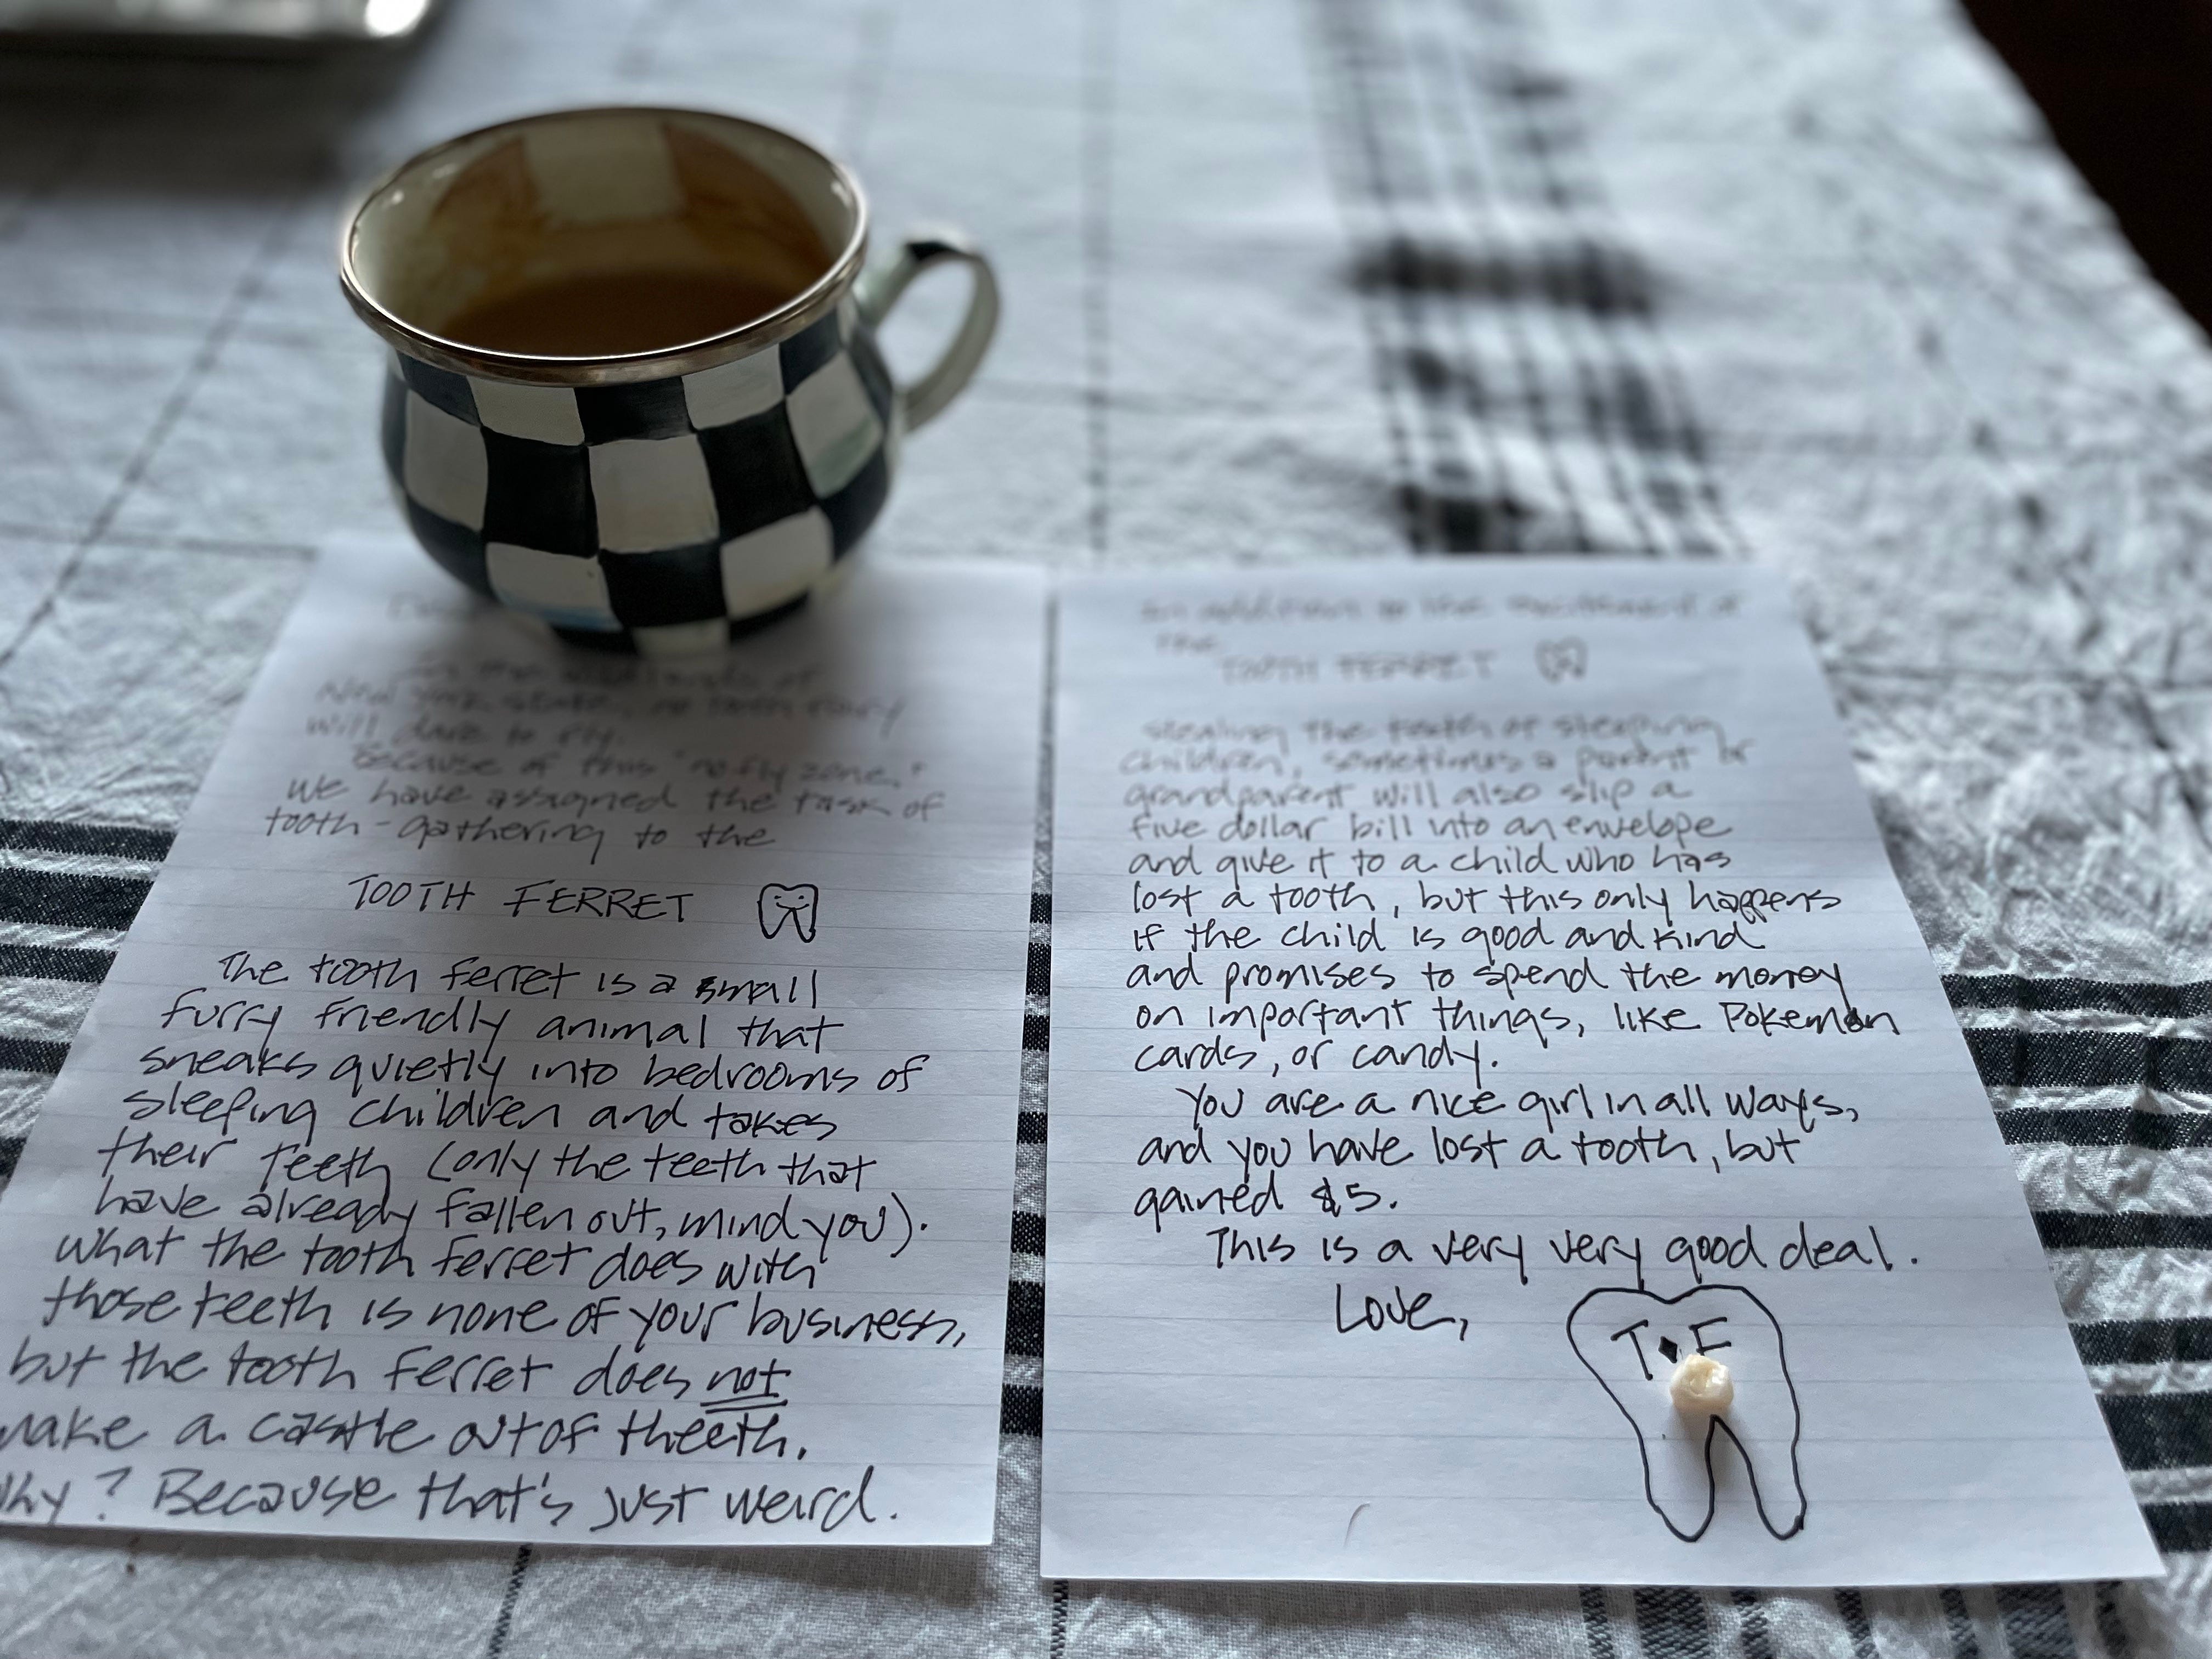 in the
New York State, no tooth fairy
will dare to fly.
Because of this "no fly zone,"
we have assigned the task of
tooth-gathering to the
TOOTH FERRET
The tooth ferret is a small
furry friendly animal that
sneaks quietly into bedrooms of
sleeping children and takes
their teeth (only the teeth that
have already fallen out, mind you).
What the tooth ferret does with
those teeth is none of your business,
but the tooth ferret does not
make a castle out of theeth.
Why? Because that's just weird.
In addition to the excitement of
the
TOOTH FERRET
stealing the teeth of sleeping
children, sometimes a parent or
grandparent will also slip a
five dollar bill into an envelope
and give it to a child who has
lost a tooth, but this only happens
if the child is good and kind
and promises to spend the money
on important things, like Pokemon
cards, or candy.
You are a nice girl in all ways,
and you have lost a tooth, but
gained $5.
This is a very very good deal.
Love,
T F